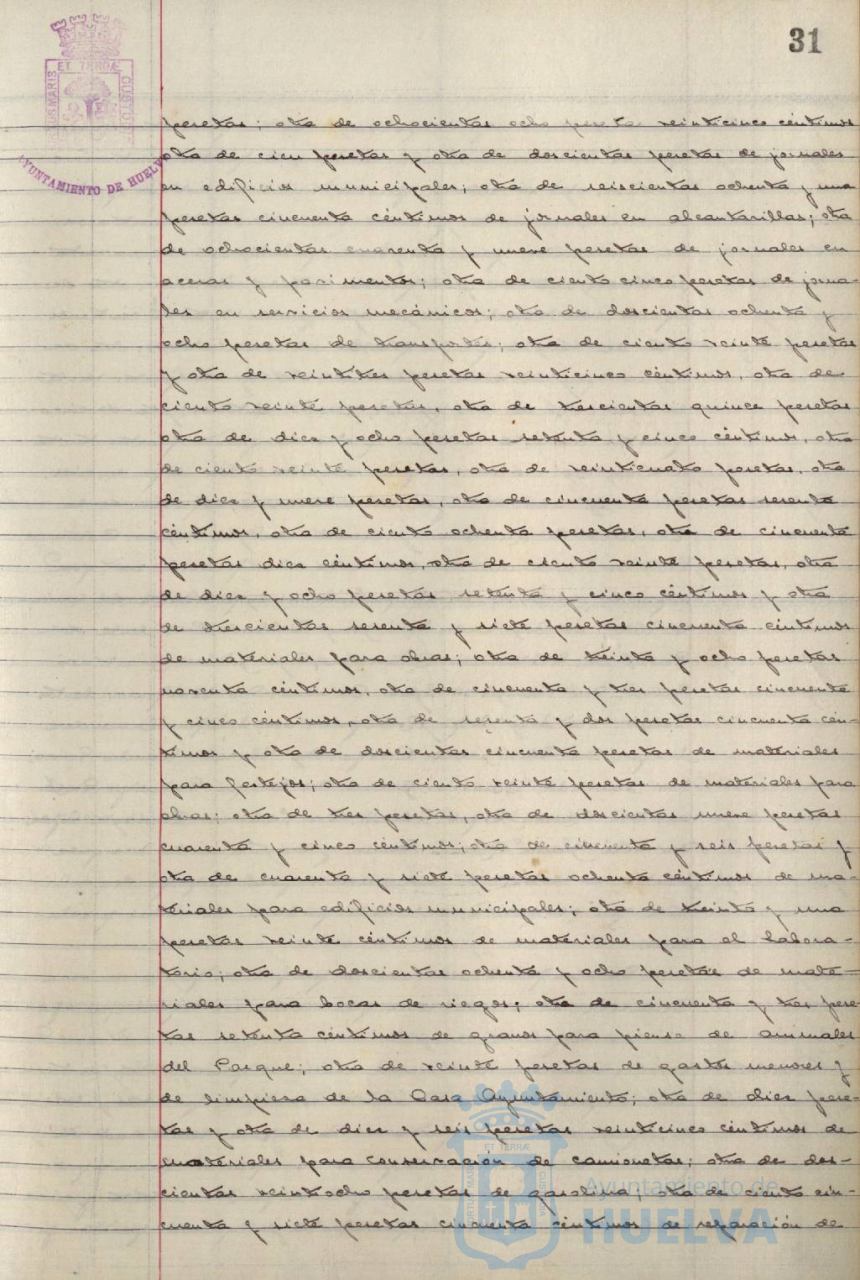 31
ET TERRÆ
CUSTODIT
AYUNTAMIENTO DE HUELVA
pesetas; otra de ochocientas ocho pesetas veinticinco céntimos
otra de cien pesetas y otra de doscientas pesetas de jornales
en edificios municipales; otra de seiscientas ochenta y una
pesetas cincuenta céntimos de jornales en alcantarillas; otra
de ochocientas cuarenta y nueve pesetas de jornales en
aceras y pavimentos; otra de ciento cinco pesetas de jorna-
les en servicios mecánicos; otra de doscientas ochenta y
ocho pesetas de transportes; otra de ciento veinte pesetas
y otra de veintitres pesetas veinticinco céntimos, otra de
ciento veinte pesetas, otra de trescientas quince pesetas
otra de diez y ocho pesetas setenta y cinco céntimos, otra
de ciento veinte pesetas, otra de veinticuatro pesetas, otra
de diez y nueve pesetas, otra de cincuenta pesetas sesenta
céntimos, otra de ciento ochenta pesetas, otra de cincuenta
pesetas diez céntimos, otra de ciento veinte pesetas, otra
de diez y ocho pesetas setenta y cinco céntimos y otra
de trescientas sesenta y siete pesetas cincuenta céntimos
de materiales para obras; otra de treinta y ocho pesetas
noventa céntimos, otra de cincuenta y tres pesetas cincuenta
y cinco céntimos, otra de sesenta y dos pesetas cincuenta cén-
timos y otra de doscientas cincuenta pesetas de materiales
para festejos; otra de ciento veinte pesetas de materiales para
obras; otra de tres pesetas, otra de doscientas nueve pesetas
cuarenta y cinco céntimos; otra de cincuenta y seis pesetas y
otra de cuarenta y siete pesetas ochenta céntimos de ma-
teriales para edificios municipales; otra de treinta y una
pesetas veinte céntimos de materiales para el labora-
torio; otra de doscientas ochenta y ocho pesetas de mate-
riales para bocas de riegos; otra de cincuenta y tres pese-
tas setenta céntimos de granos para pienso de animales
del Parque; otra de veinte pesetas de gastos menores y
de limpieza de la Casa Ayuntamiento; otra de diez pese-
tas y otra de diez y seis pesetas veinticinco céntimos de
materiales para conservación de camionetas; otra de dos-
cientas veintiocho pesetas de gasolina; otra de ciento cin-
cuenta y siete pesetas cincuenta céntimos de reparación de
ET TERRÆ
Ayuntamiento de
HUELVA